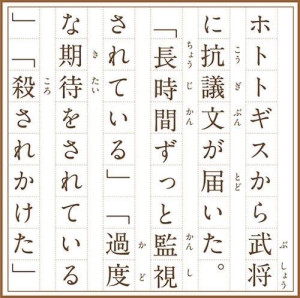 ホトトギスから武将
に抗議文が届いた。
「長時間ずっと監視
されている」「過度
な期待をされている
」「殺されかけた」
ぶしょう
こうぎぶん
とど
ちょうじかん
かんし
かど
きたい
ころ